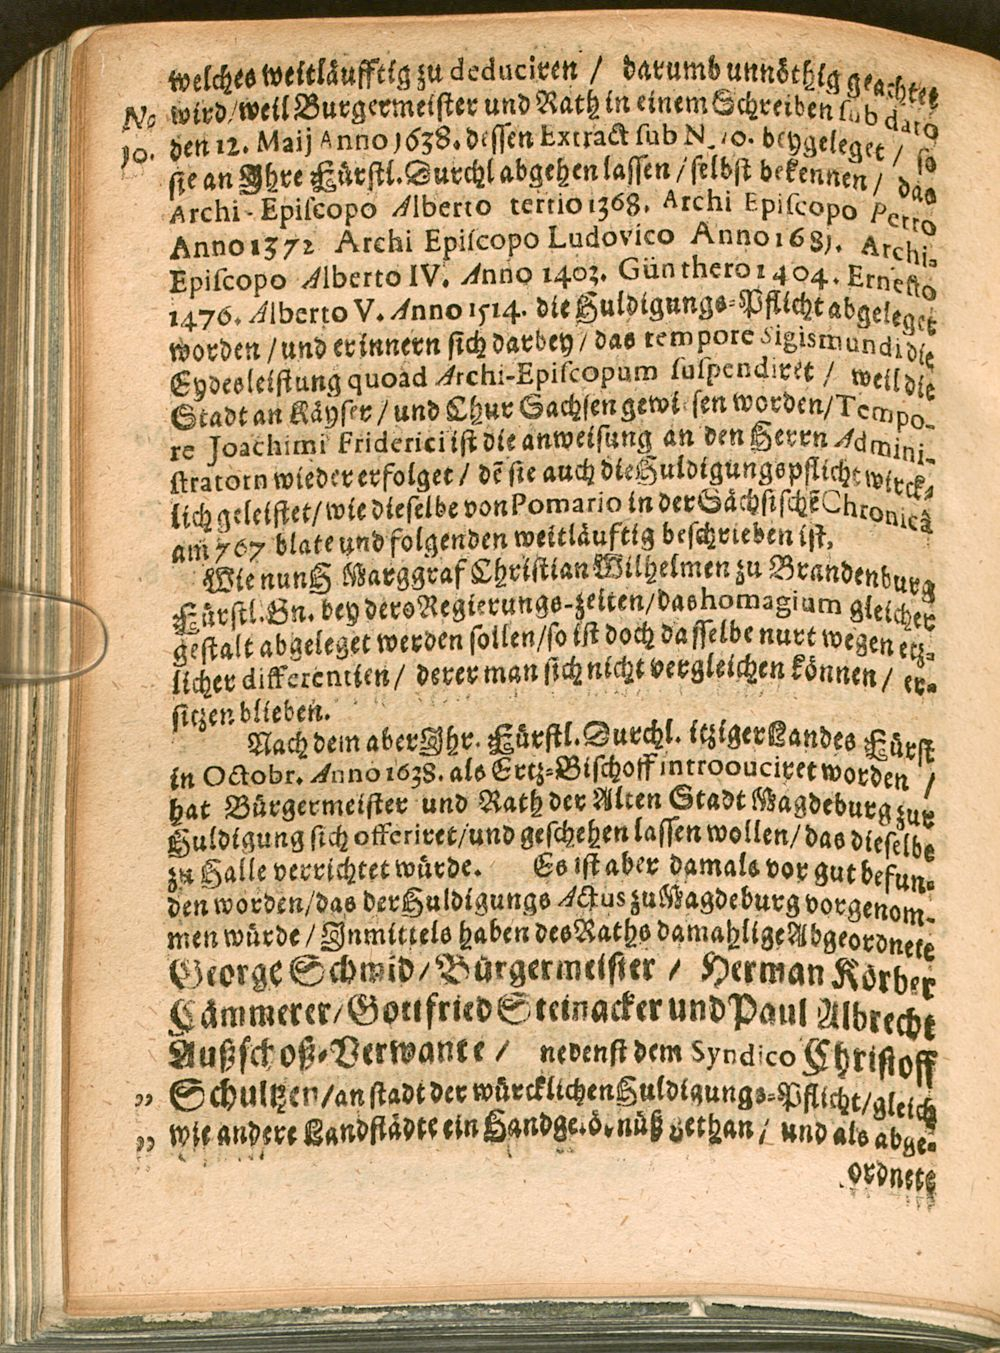 welches weitläufftig zu deduciren / darumb unnöthig geachtet
No wird / weil Burgermeister und Rath in einem Schreiben sub dato
10. den 12. Maij Anno 1638. dessen Extract sub N. 10. beygeleget / so
sie an Ihre Fürstl. Durchl abgehen lassen / selbst bekennen / das
Archi-Episcopo Alberto tertio 1368. Archi Episcopo Petro
Anno 1372 Archi Episcopo Ludovico Anno 1681. Archi-
Episcopo Alberto IV. Anno 1403. Günthero 1404. Ernesto
1476. Alberto V. Anno 1514. die Huldigungs-Pflicht abgeleget
worden / und erinnern sich darbey / das tempore Sigismundi die
Eydesleistung quoad Archi-Episcopum suspendiret / weil die
Stadt an Käyser / und Chur Sachsen gewiesen worden / Tempo-
re Joachimi Friderici ist die anweisung an den Herrn Admini-
stratorn wieder erfolget / dē sie auch die Huldigungspflicht wirck-
lich geleistet / wie dieselbe von Pomario in der Sächsischē Chronicâ
am 767 blate und folgenden weitläuftig beschrieben ist,
Wie nun H Marggraf Christian Wilhelmen zu Brandenburg
Fürstl. Gn. bey dero Regierungs-zeiten / das homagium gleicher
gestalt abgeleget werden sollen / so ist doch dasselbe nurt wegen etz-
licher differentien / derer man sich nicht vergleichen können / er-
sitzen blieben.
Nach dem aber Ihr. Fürstl. Durchl. itziger Landes Fürst
in Octobr. Anno 1638. als Ertz-Bischoff introduciret worden /
hat Bürgermeister und Rath der Alten Stadt Magdeburg zur
Huldigung sich offeriret / und geschehen lassen wollen / das dieselbe
zu Halle verrichtet würde. Es ist aber damals vor gut befun-
den worden / das der Huldigungs Actus zu Magdeburg vorgenom-
men würde / Inmittels haben des Raths damahlige Abgeordnete
George Schmid / Bürgermeister / Herman Körber
Cämmerer / Gottfried Steinacker und Paul Albrecht
Außschoß-Verwante / nebenst dem Syndico Christoff
„ Schultzen / an stadt der würcklichen Huldigungs-Pflicht / gleich
„ wie andere Landstädte ein Handgelöbnüß gethan / und als abge-
ordnete